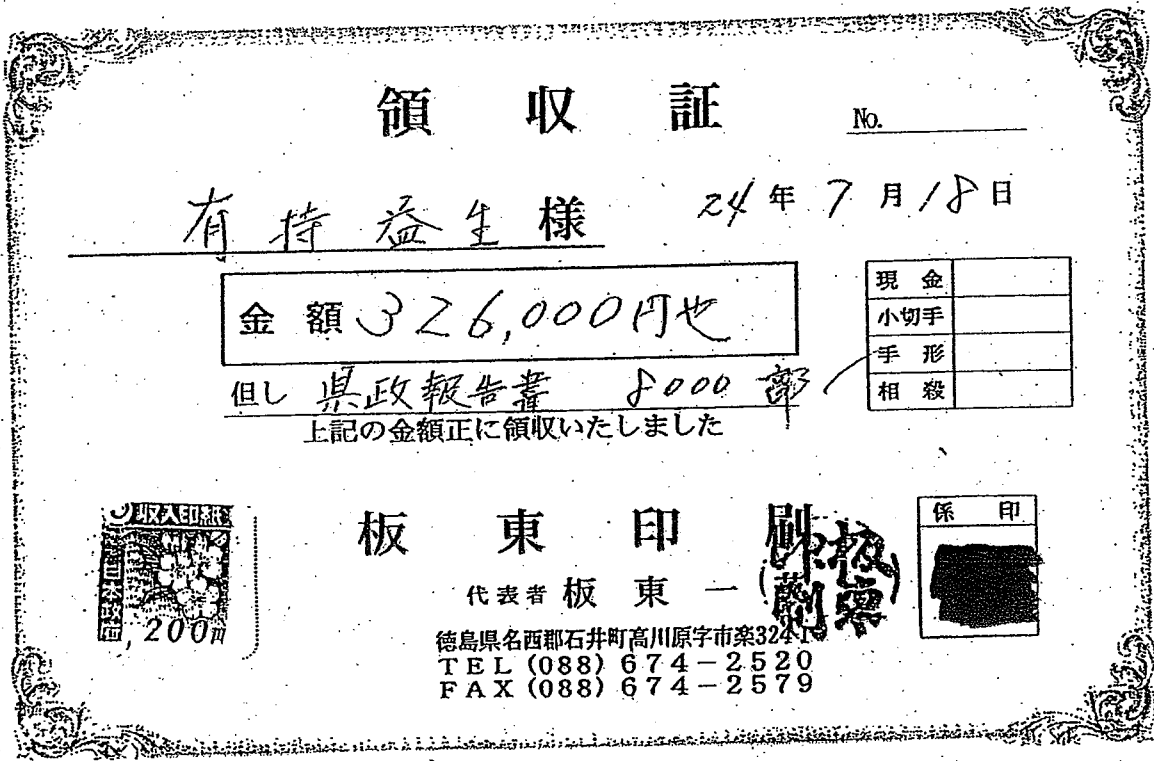 領収証
No.
有持益生様
24年7月18日
金額 326,000円也
現金
小切手
手形
相殺
但し 県政報告書 8000部
上記の金額正に領収いたしました
収入印紙
200円
板東印刷
代表者 板東一
係印
徳島県名西郡石井町高川原字市楽324-1
TEL (088) 674-2520
FAX (088) 674-2579